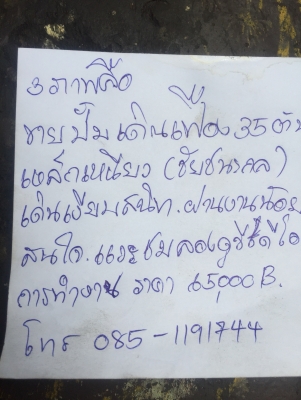 3 ภาพคือ
ขายปั๊มเดินเฟือง 35 ตัน
เหล็กเหนียว (ชัยชนะกล)
เดินเงียบสนิท.ผ่านงานน้อย
สนใจ.และชมลองดูวีซีดี
การทำงาน ราคา 65,000 B.
โทร 085-1191744